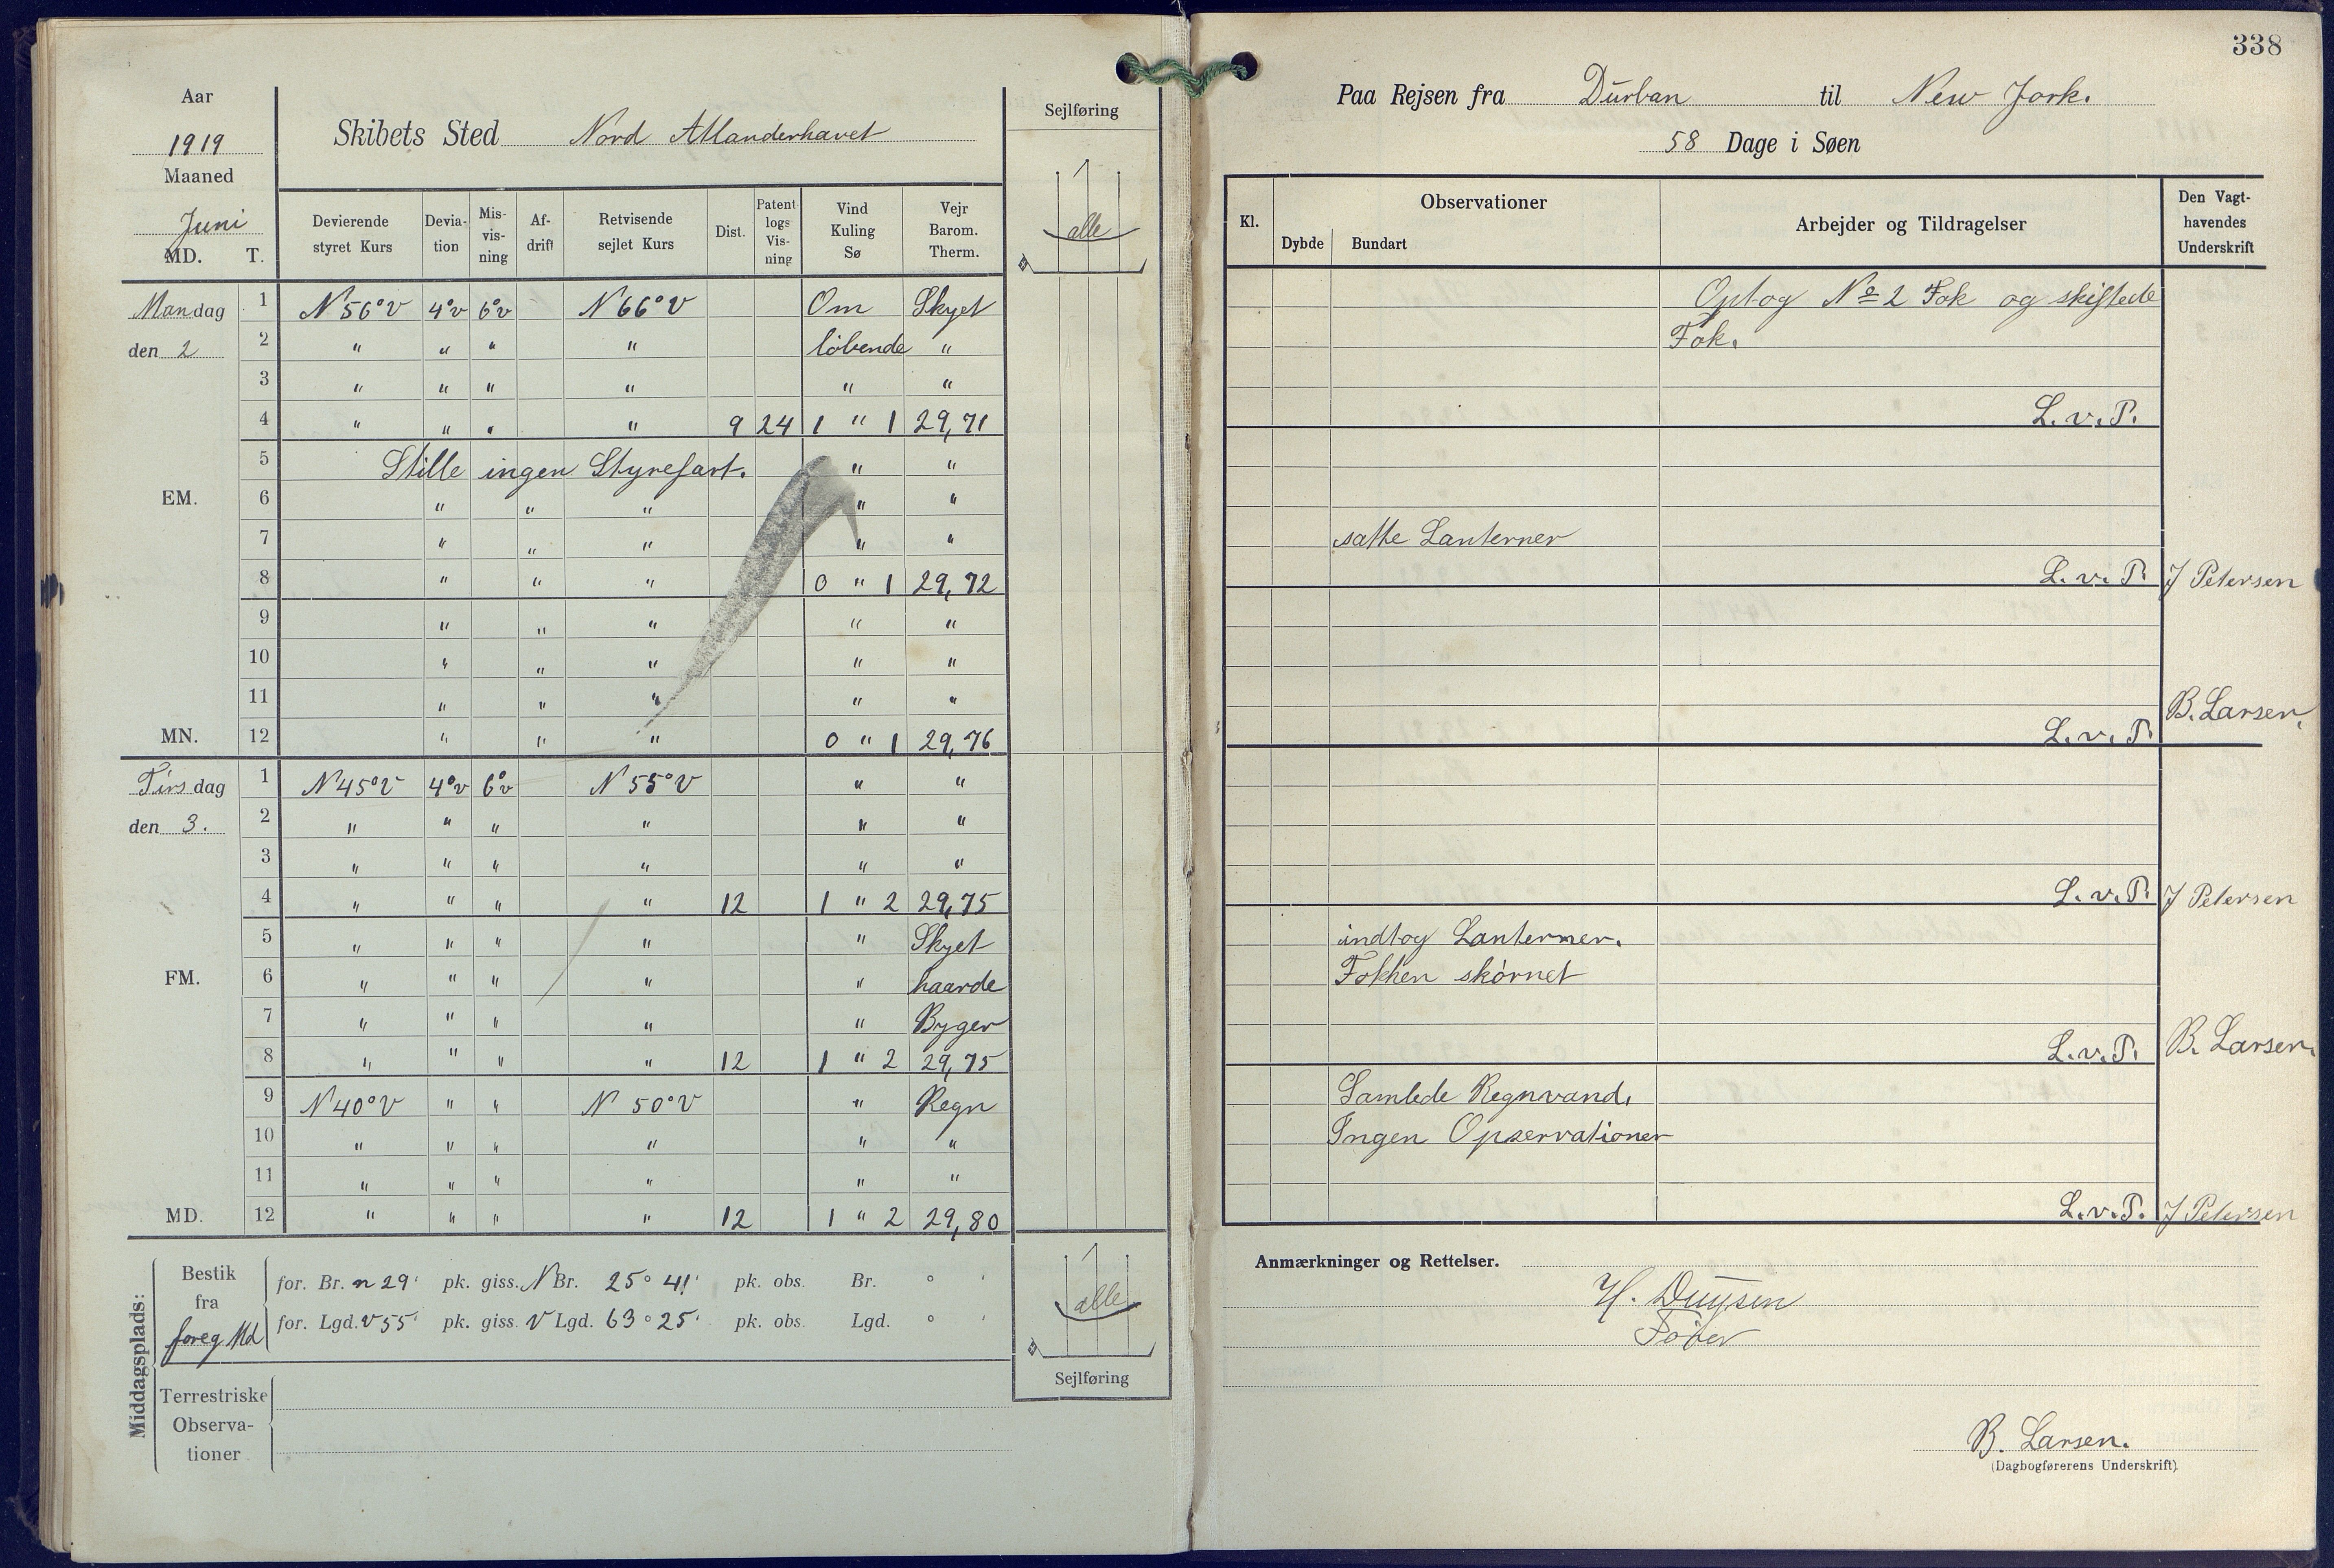 Aar
1919
Maaned
Juni
MD. T.
Skibets Sted Nord Atlanderhavet
Sejlføring
alle
Devierende styret Kurs
Devia-tion
Mis-vis-ning
Af-drift
Retvisende sejlet Kurs
Dist.
Patent-logs Vis-ning
Vind Kuling Sø
Vejr Barom. Therm.
Mandag 1 N 56° V 4° v 6° v N 66° V Om Skyet
den 2 2 " " " " löbende "
3 " " " " " "
4 " " " " 9 24 1 " 1 29,71
5 Stille ingen Styrefart. " "
EM. 6 " " " " "
7 " " " " "
8 " " " 0 " 1 29,72
9 " " " " "
10 " " " " "
11 " " " " "
MN. 12 " " " 0 " 1 29,76
Tirsdag 1 N 45° V 4° v 6° v N 55° V " "
den 3. 2 " " " " " "
3 " " " " " "
4 " " " " 12 1 " 2 29,75
5 " " " " " Skyet
FM. 6 " " " " " haarde
7 " " " " " Byger
8 " " " " 12 1 " 2 29,75
9 N 40° V " " N 50° V " Regn
10 " " " " " "
11 " " " " " "
MD. 12 " " " " 12 1 " 2 29,80
Middagsplads:
Bestik fra foreg Md
for. Br. n 29' pk. giss. N Br. 25° 41' pk. obs. Br. ° '
for. Lgd. v 55' pk. giss. V Lgd. 63° 25' pk. obs. Lgd. ° '
Terrestriske Observa-tioner
alle
Sejlføring
338
Paa Rejsen fra Durban til New Jork.
58 Dage i Søen
Kl.
Observationer
Dybde Bundart
Arbejder og Tildragelser
Den Vagt-havendes Underskrift
Optog No 2 Fok og skiftede
Fok.
L. v. P.
satte Lanterner
L. v. P. J Petersen
B. Larsen.
L. v. P.
L. v. P. J Petersen
indtog Lanterner.
Fokken skórnet
L. v. P. B. Larsen.
Samlede Regnvand.
Ingen Opservationer
L. v. P. J Petersen
Anmærkninger og Rettelser.
H. Duysen
Förer
B. Larsen.
(Dagbogførerens Underskrift).